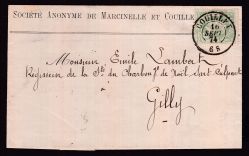 SOCIÉTÉ ANONYME DE MARCINELLE ET COUILLET
COUILLET
10
SEPT
74
6 S
Monsieur Emile Lambert
Régisseur de la Sté du Charbonge de Noël Sart Culpart
Gilly